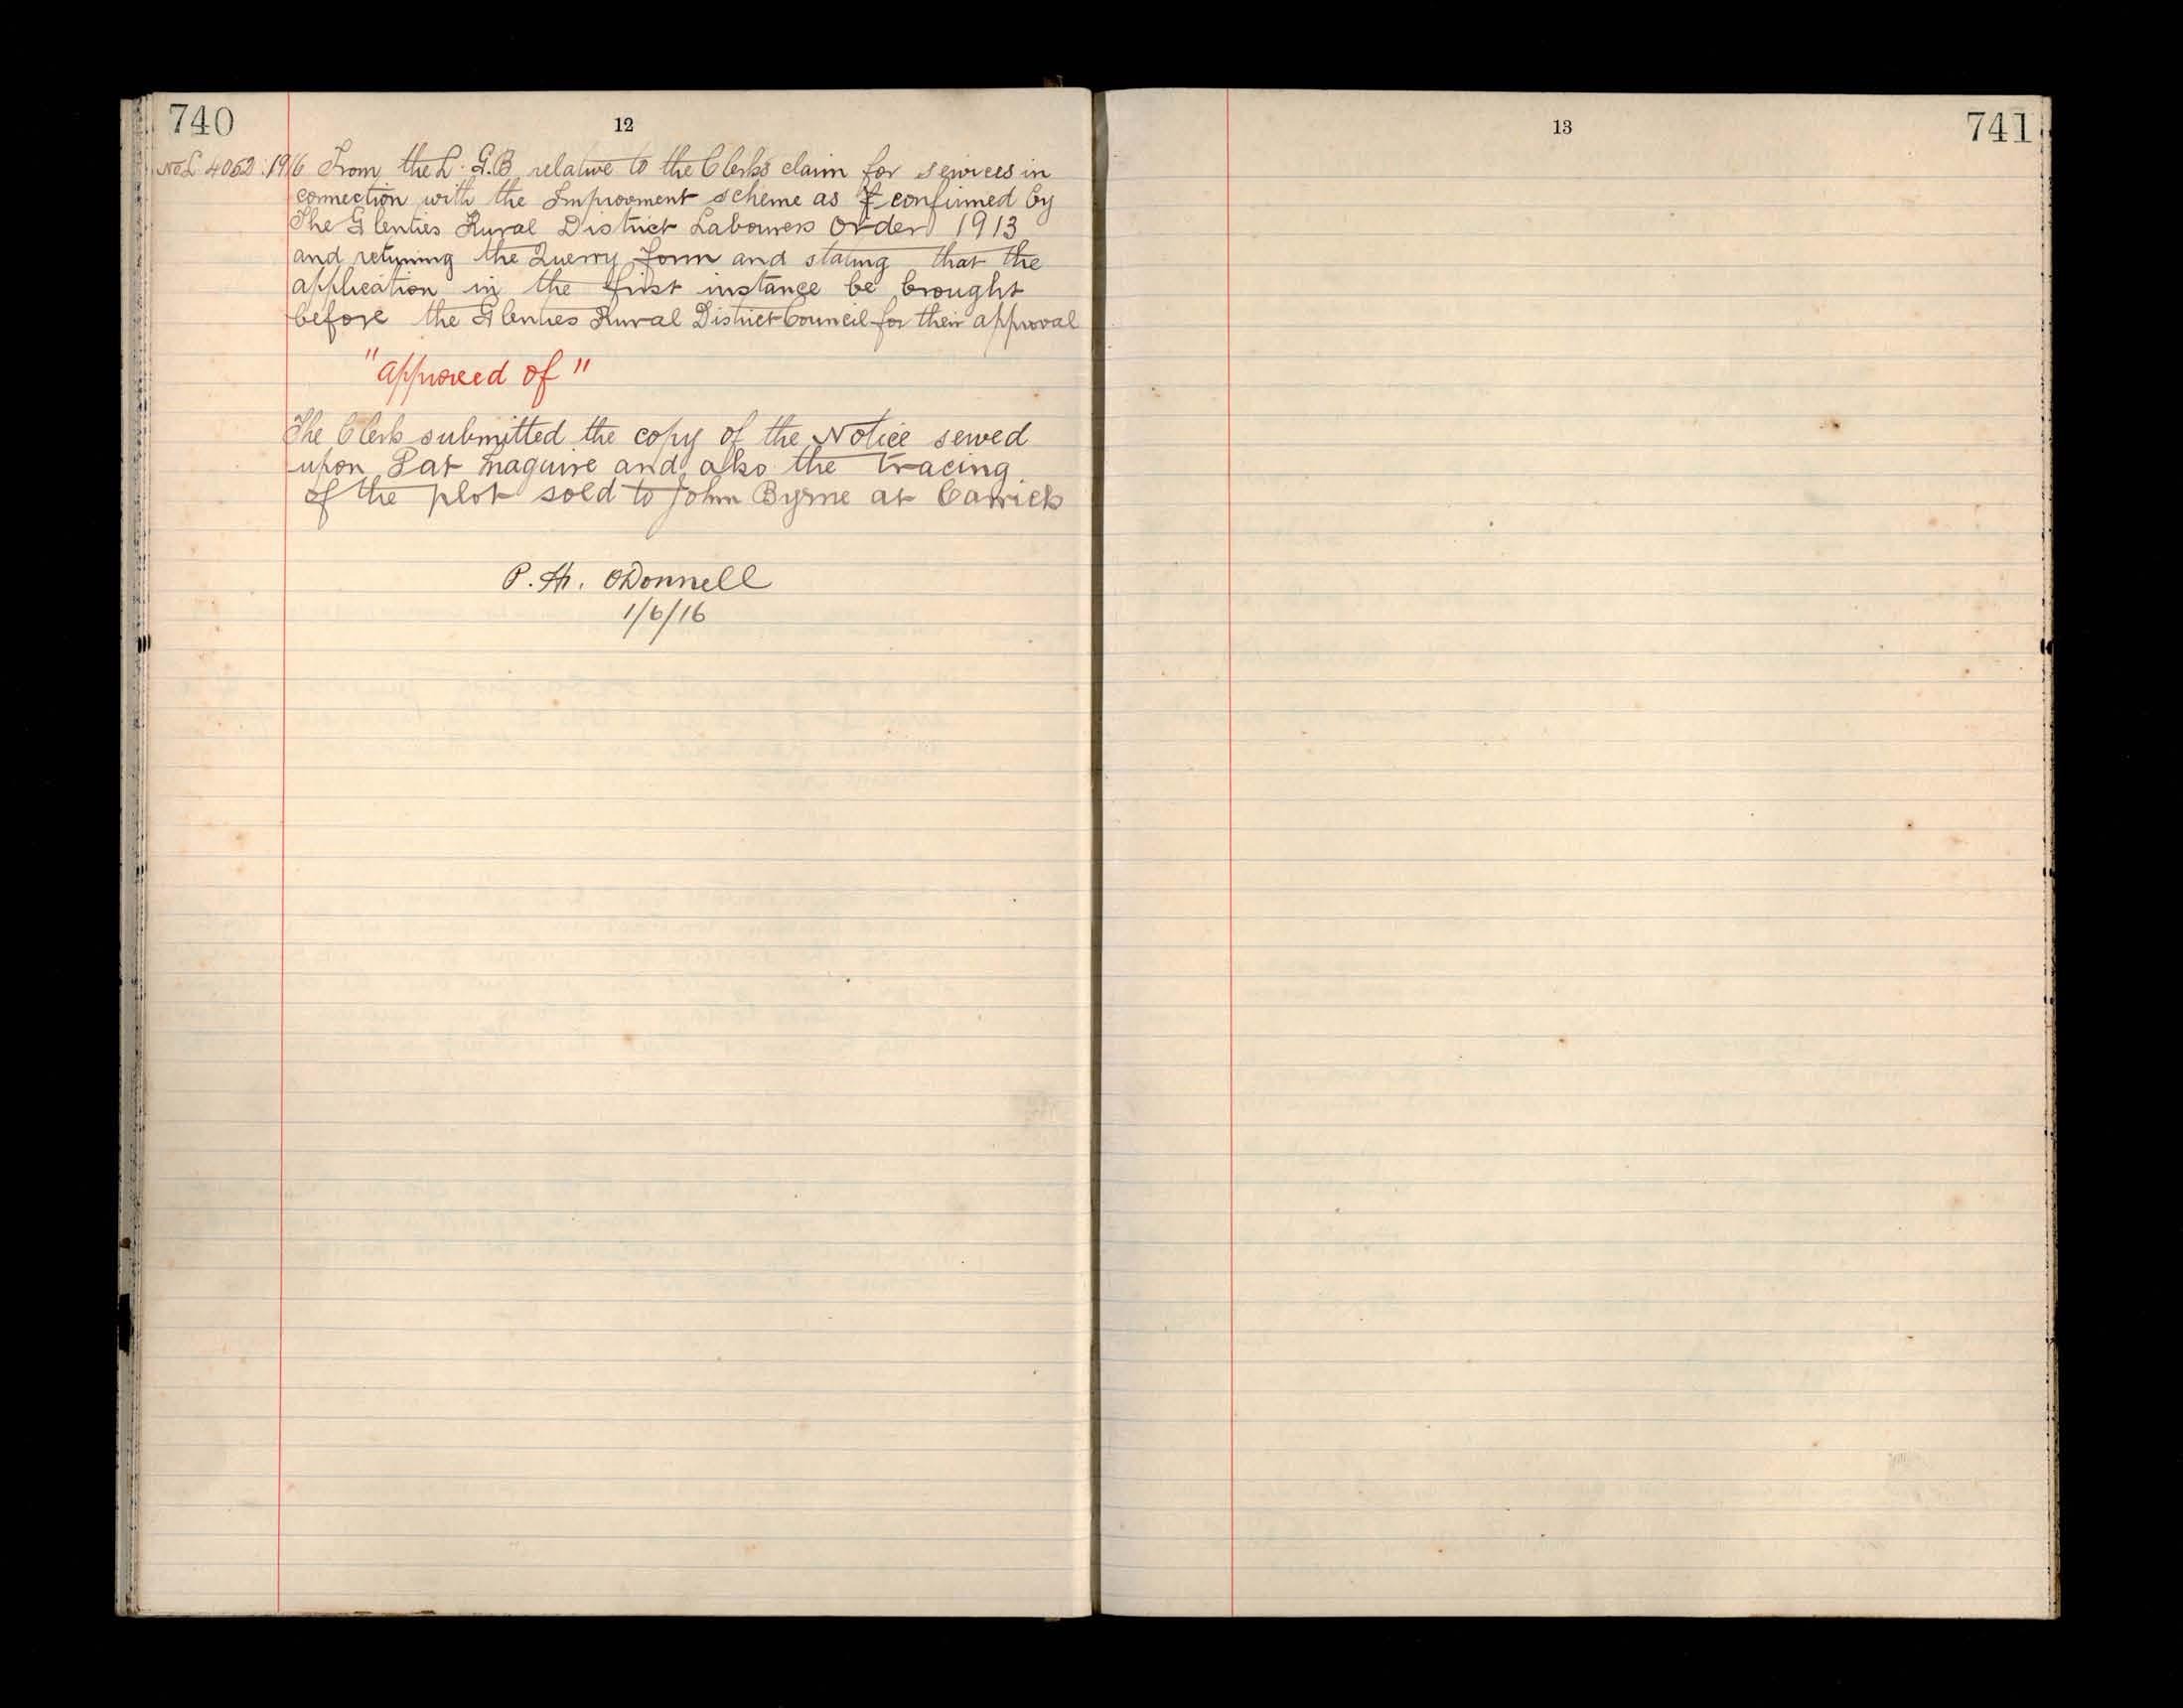 740
12
No L 4052.1916 From the L. G. B. relative to the Clerks claim for services in
connection with the Improvment scheme as confirmed by
The Glenties Rural District Labourers Order 1913
and returning the Querry Form and stating that the
application in the first instance be brought
before the Glenties Rural District Council for their approval
"approved of"
The Clerk submitted the copy of the Notice served
upon Pat Maguire and also the tracing
of the plot sold to John Byrne at Carrick
P. H. O'Donnell
1/6/16
13
741